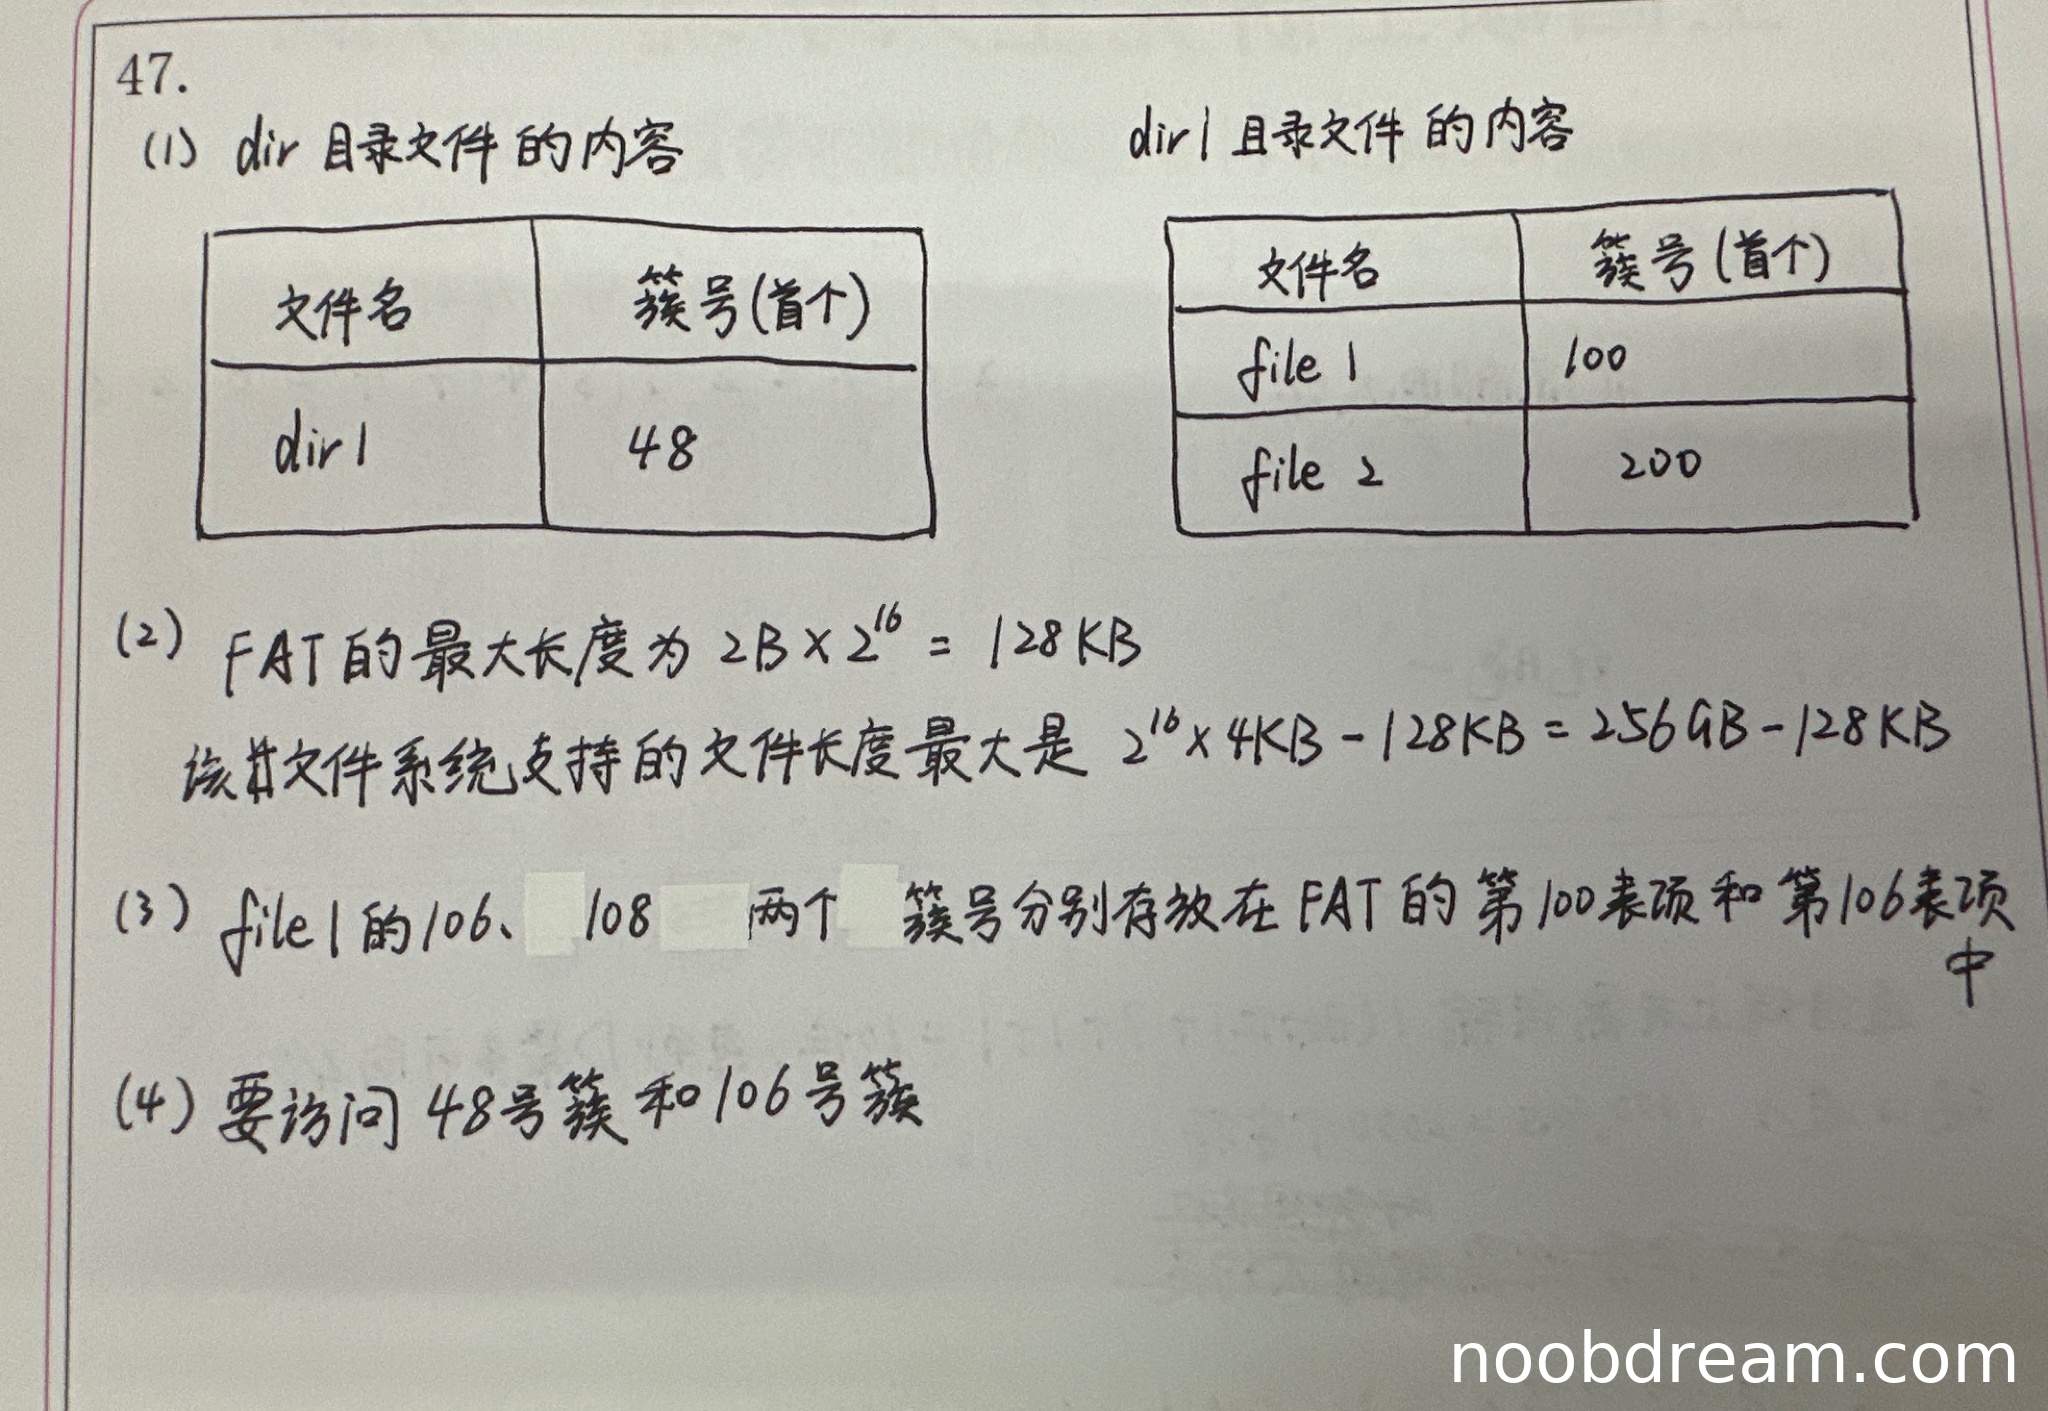 47.
(1) dir 目录文件的内容
文件名 簇号(首个)
dir1 48
dir1 目录文件的内容
文件名 簇号(首个)
file 1 100
file 2 200
(2) FAT的最大长度为 2B×2^16 = 128KB
该文件系统支持的文件长度最大是 2^16×4KB-128KB=256GB-128KB
(3) file1的106、108 两个 簇号分别存放在FAT的第100表项和第106表项
中
(4) 要访问48号簇和106号簇
noobdream.com